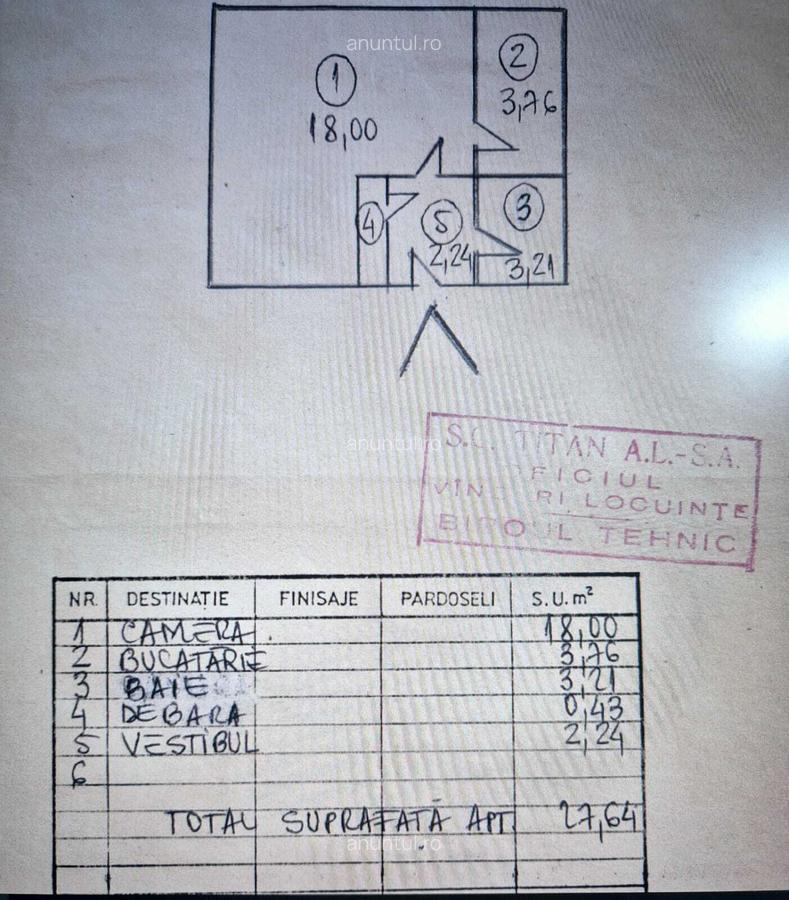 anuntul.ro
1
2
18,00
3,76
4
5
3
2,24
3,21
anuntul.ro
S.C. TITAN A.L.-S.A.
FICIUL
VIN RI LOCUINTE
BIROUL TEHNIC
NR. DESTINAȚIE FINISAJE PARDOSELI S.U. m²
1 CAMERA 18,00
2 BUCATĂRIE 3,76
3 BAIE 3,21
4 DEBARA 0,43
5 VESTIBUL 2,24
6
TOTAL SUPRAFATĂ APT. 27,64
anuntul.ro